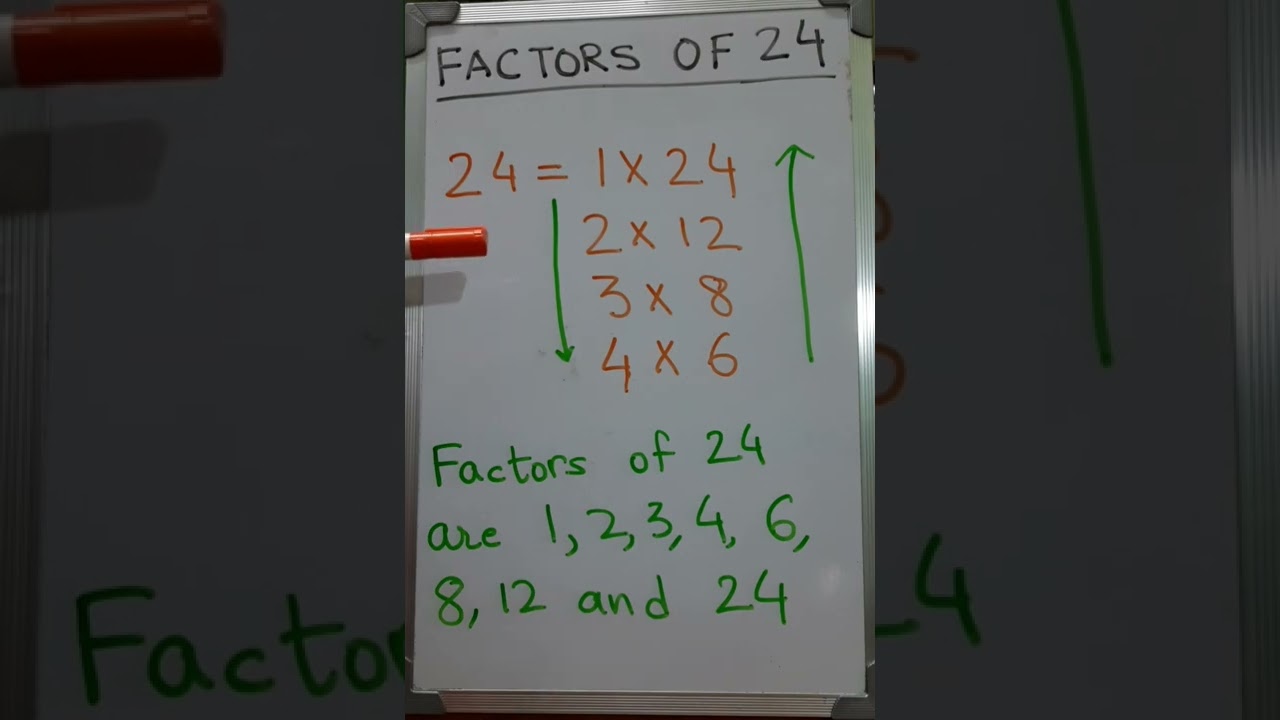 FACTORS OF 24
24 = 1 x 24
2 x 12
3 x 8
4 x 6
Factors of 24
are 1, 2, 3, 4, 6,
8, 12 and 24